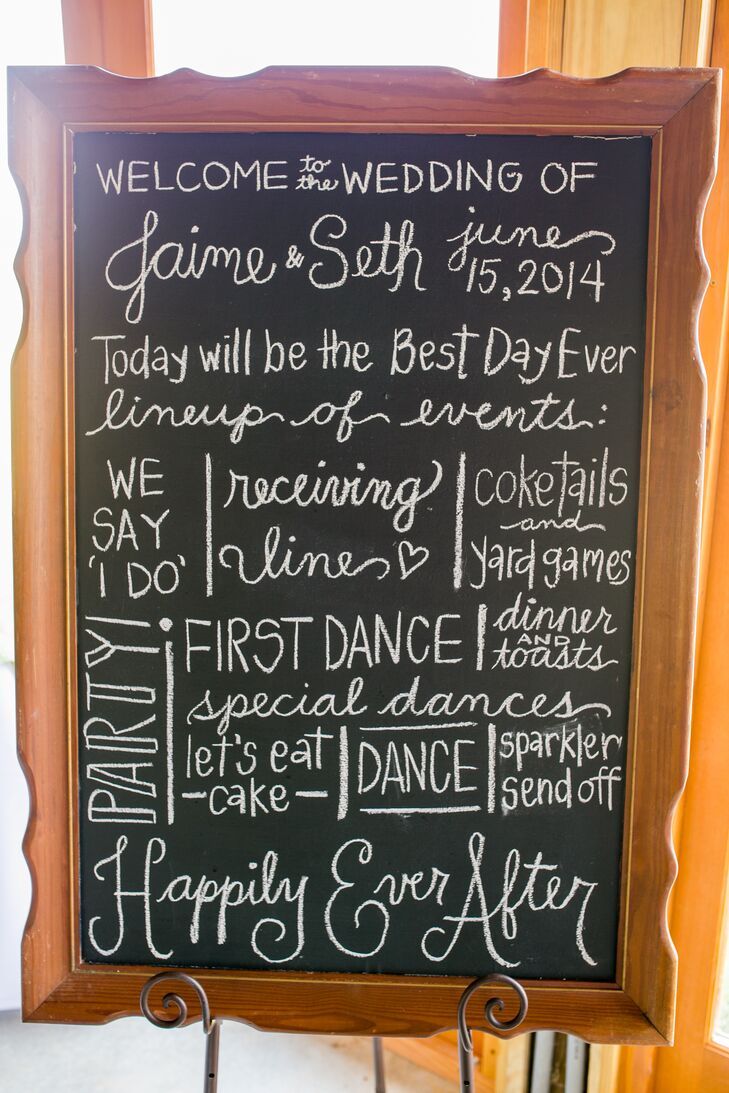 WELCOME to the WEDDING OF
Jaime & Seth june 15, 2014
Today will be the Best Day Ever
lineup of events:
WE SAY 'I DO'
receiving line
coketails and yard games
PARTY!
FIRST DANCE
dinner AND toasts
special dances
let's eat -cake-
DANCE
sparkler send off
Happily Ever After